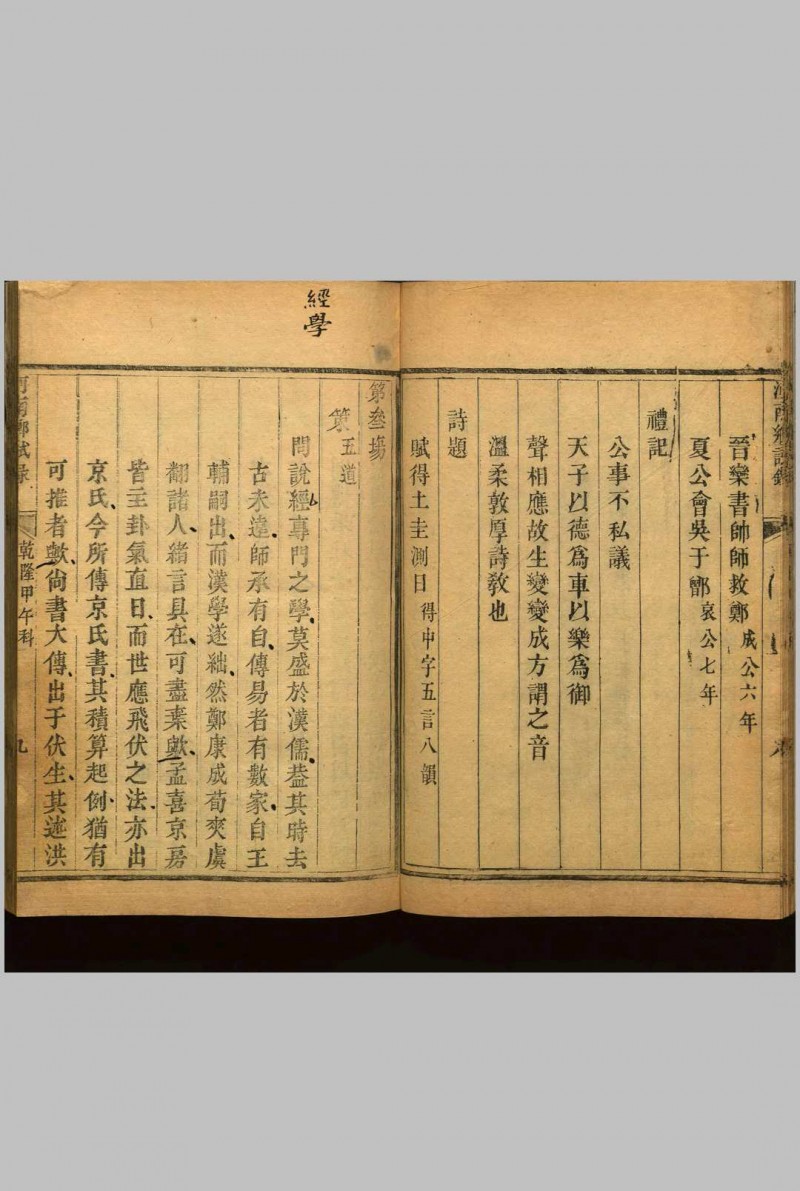 晉欒書帥師救鄭成公六年
夏公會吳于鄫哀公七年
禮記
公事不私議
天子以德為車以樂為御
聲相應故生變變成方謂之音
溫柔敦厚詩教也
詩題
賦得土圭測日得中字五言八韻
經學
第叁場
第五道
問說經專門之學莫盛於漢儒葢其時去
古未遠師承有自傳易者有數家自王
輔嗣出而漢學遂絀然鄭康成荀爽虞
翻諸人緒言具在可盡棄歟孟喜京房
皆主卦氣直日而世應飛伏之法亦出
京氏今所傳京氏書其積算起例猶有
可推者歟尙書大傳出于伏生其述洪
河南鄉試录 乾隆甲午科 九